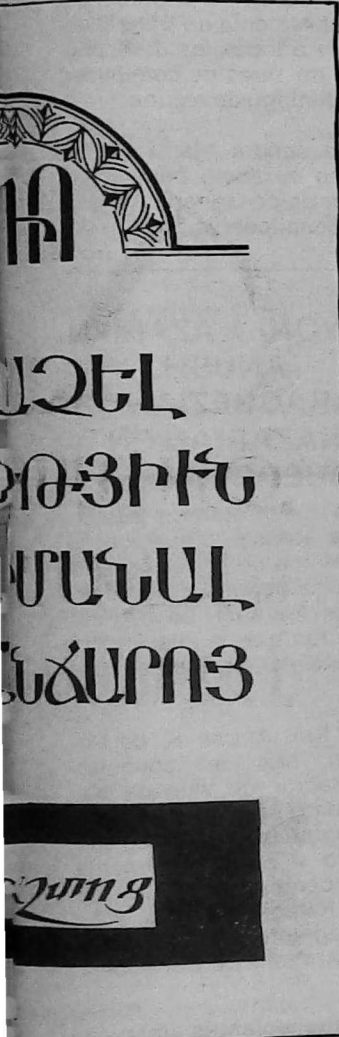 ԱՉԵԼ
ԹՅԻՒՆ
ՄԱՆԱԼ
ՆՃԱՐՈՅ
շտոց